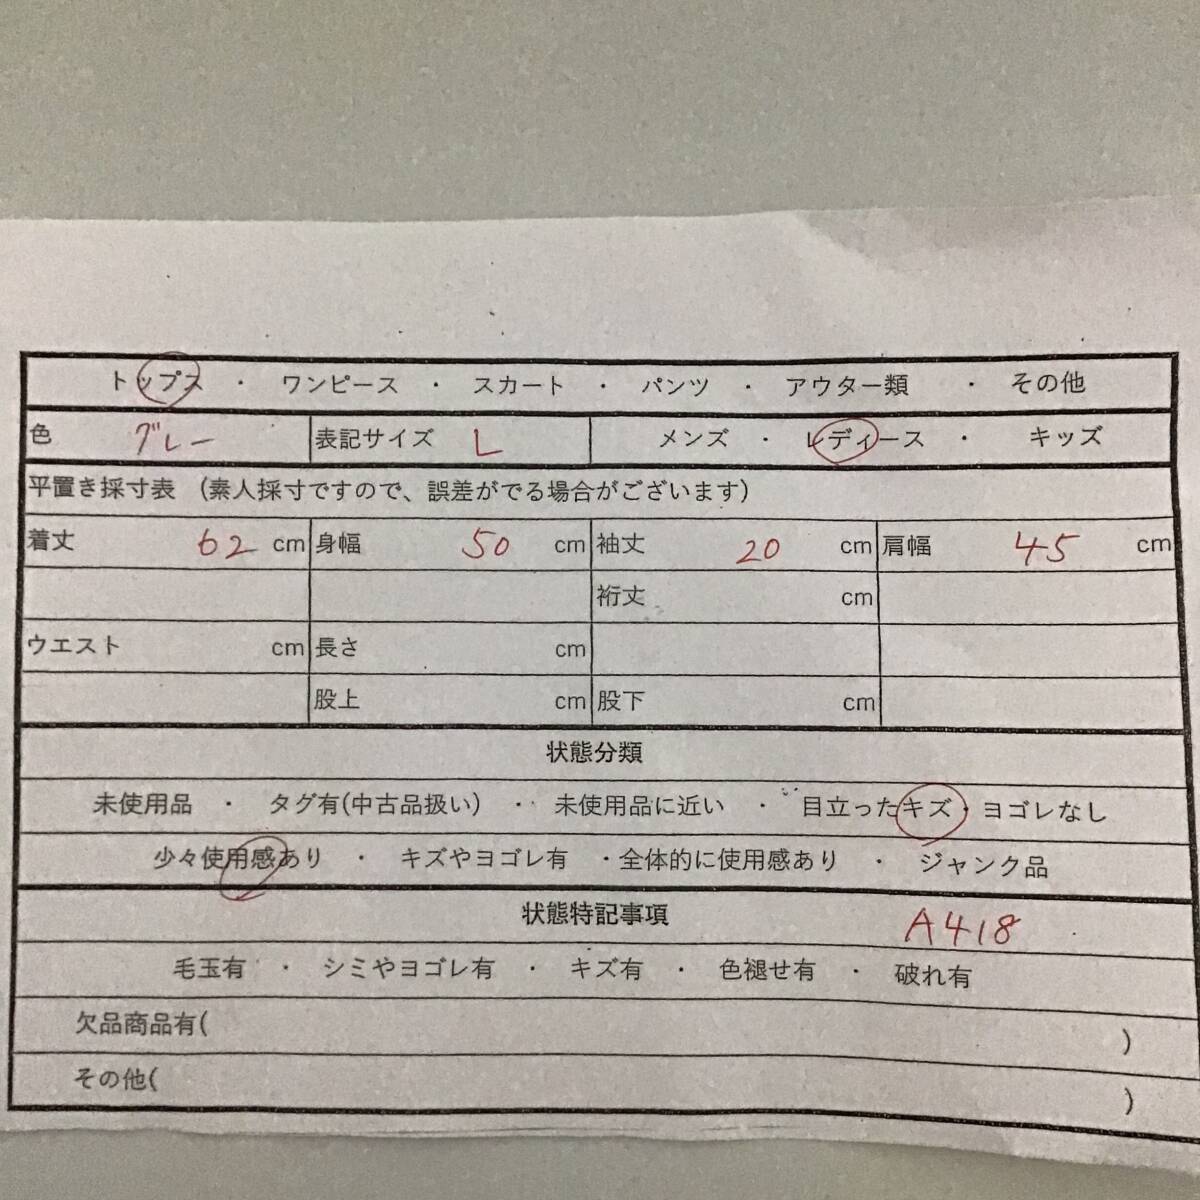 トップス ・ ワンピース ・ スカート ・ パンツ ・ アウター類 ・ その他
色 グレー 表記サイズ L メンズ ・ レディース ・ キッズ
平置き採寸表 (素人採寸ですので、誤差がでる場合がございます)
着丈 62 cm 身幅 50 cm 袖丈 20 cm 肩幅 45 cm
裄丈 cm
ウエスト cm 長さ cm
股上 cm 股下 cm
状態分類
未使用品 ・ タグ有(中古品扱い) ・ 未使用品に近い ・ 目立ったキズ・ヨゴレなし
少々使用感あり ・ キズやヨゴレ有 ・全体的に使用感あり ・ ジャンク品
状態特記事項 A418
毛玉有 ・ シミやヨゴレ有 ・ キズ有 ・ 色褪せ有 ・ 破れ有
欠品商品有( )
その他( )